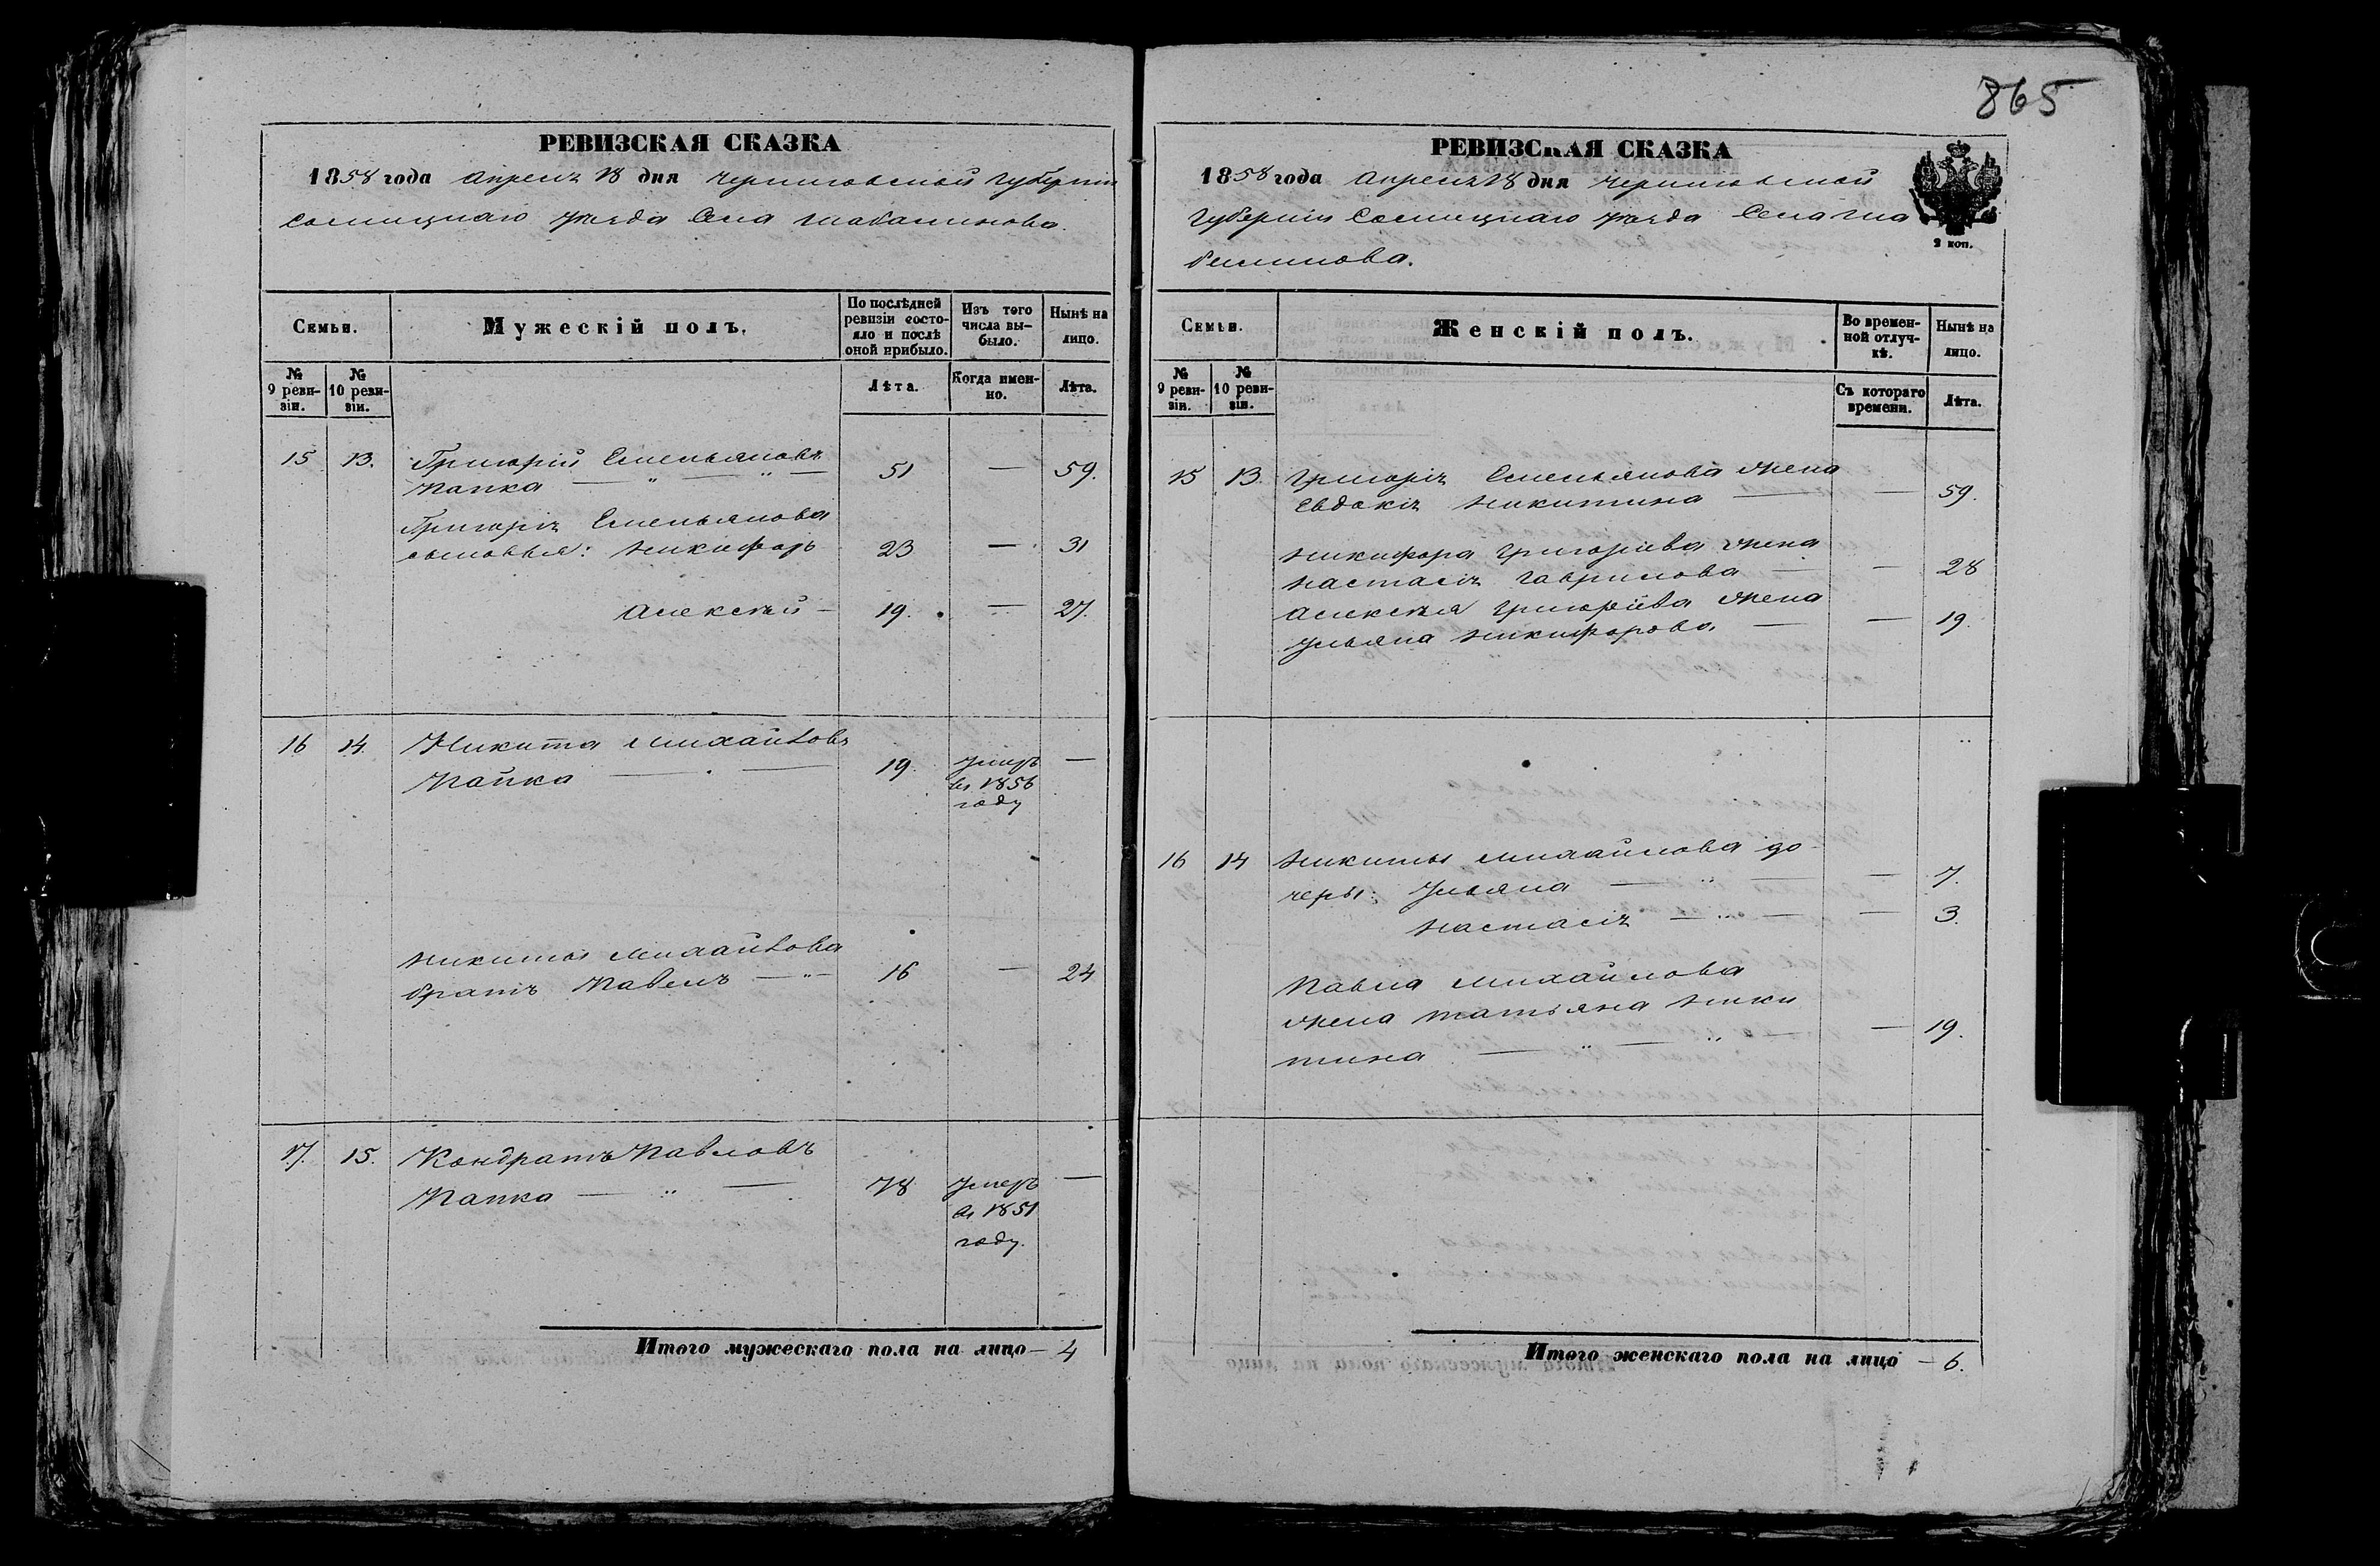 865
РЕВИЗСКАЯ СКАЗКА
1858 года апреля 18 дня Черниговской Губернии
Сосницкаго уезда Села Шабалинова.
Семьи.
Мужескій полъ.
По послѣдней ревизіи состо-
яло и послѣ оной прибыло.
Изъ того числа вы-
было.
Нынѣ на лицо.
№ 9 реви-
зіи.
№ 10 реви-
зіи.
Лѣта.
Когда имен-
но.
Лѣта.
15 13. Григорій Емельяновъ
Папка — " — " — 51 — 59.
Григорія Емельянова
сыновья: Никифоръ 23 — 31
Алексѣй — 19. — 27.
16 14. Никита Михайловъ
Папка — 19. умеръ —
въ 1856
году
Никиты Михайлова
братъ Павелъ — " — 16 — 24
17. 15. Кондратъ Павловъ
Папка — " — 78 умеръ —
въ 1851
году.
Итого мужескаго пола на лицо — 4
РЕВИЗСКАЯ СКАЗКА
1858 года апреля 18 дня Черниговской
Губерніи Сосницкаго уезда Села Ша
балинова.
2 коп.
Семьи.
Женскій полъ.
Во времен-
ной отлуч-
кѣ.
Нынѣ на лицо.
№ 9 реви-
зіи.
№ 10 реви-
зіи.
Съ котораго времени.
Лѣта.
15 13. Григорія Емельянова жена
Евдокія Никитина — — 59.
Никифора Григоріева жена
Настасія Гаврилова — — 28
Алексѣя Григоріева жена
Ульяна Никифорова — — 19.
16 14 Никиты Михайлова до
черы: Ульяна — " — — 7.
Настасія — " — — 3.
Павла Михайлова
жена Татьяна Ники
тина — " — " — — 19.
Итого женскаго пола на лицо — 6.